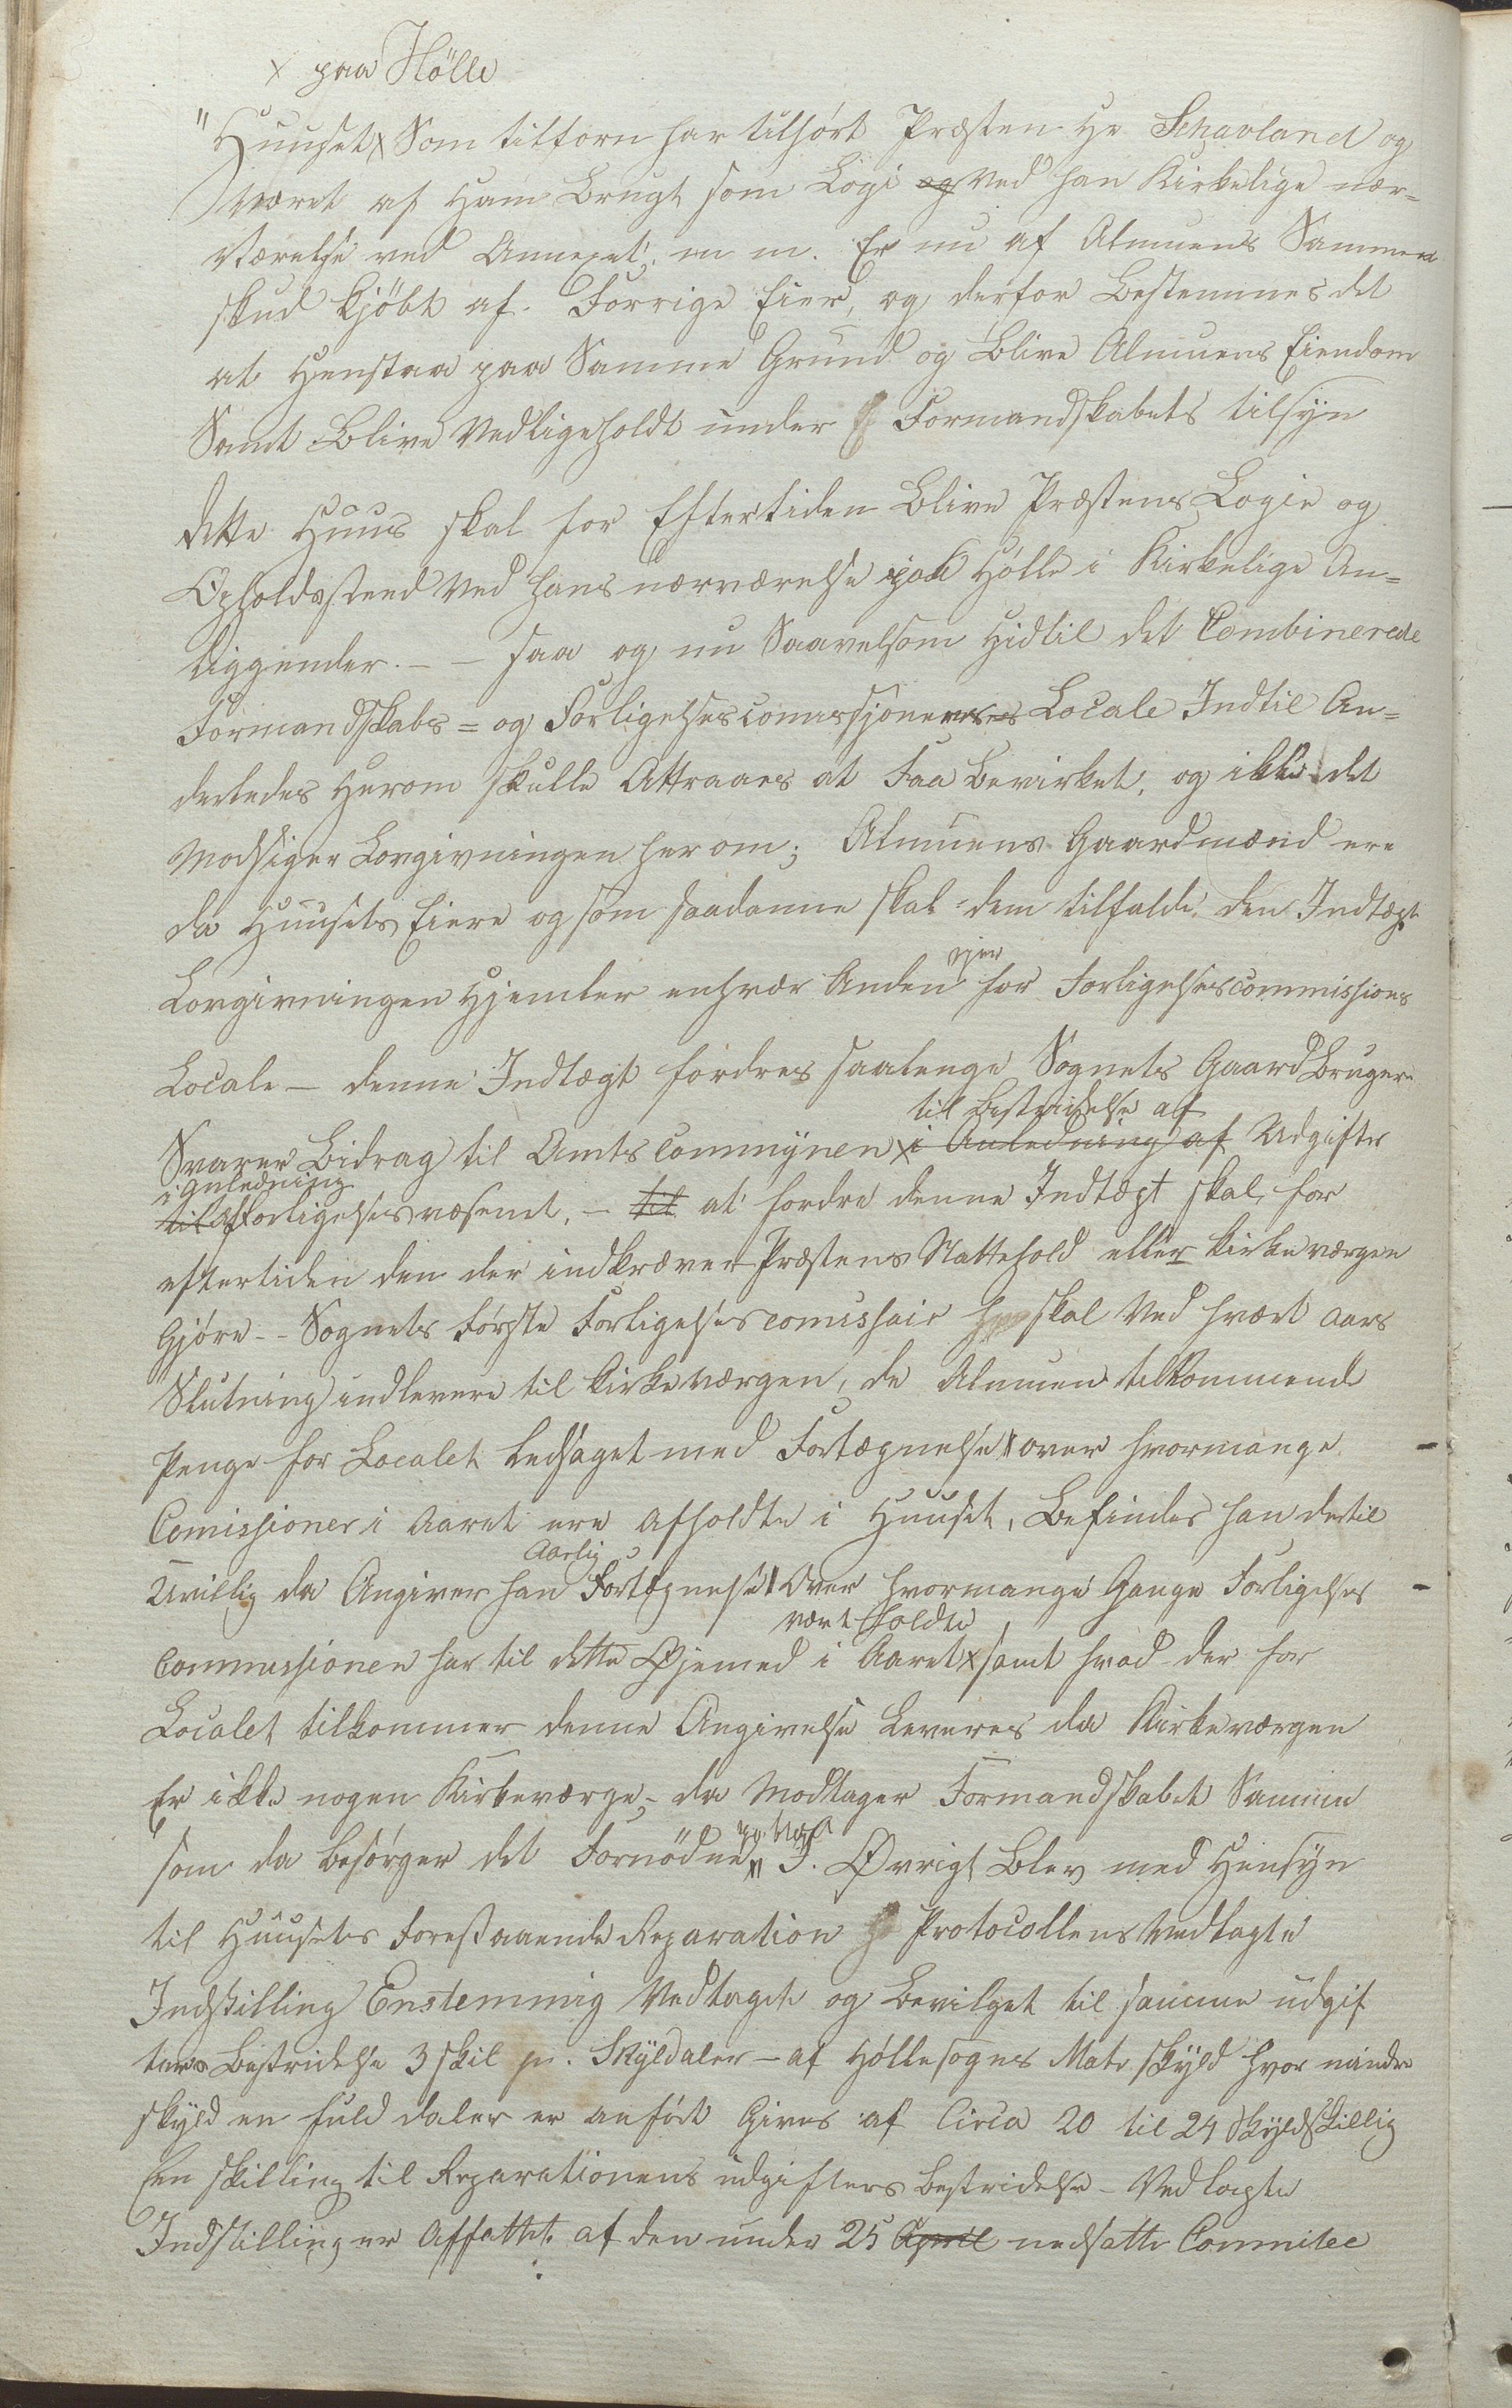 x paa Hölle
"Huuset x Som tilforn har tilhørt Præsten Hr Schavland og
været af Ham Brugt som Logi og Ved han Kirkelige nær-
værelse ved Annexet, m m. Er nu af Almuens Sammen
skud kjöbt af Forrige Eier, og derfor Bestemmes det
at Henstaa paa Samme Grund og Blive Almuens Eiendom
Samt Blive Vedligeholdt under Formandskabets tilsyn
dette Huus skal for Eftertiden Blive Præstens Logie og
Opholdssteed Ved hans nærværelse paa Hölle i Kirkelige An=
liggender. – – saa og nu Saavelsom Hidtil det Combinerede
Formandskabs= og Forligelsescomissjonernes Locale Indtil An=
derledes Herom skulle Attraaes at Faa bevirket, og ikke det
Modsiger Lovgivningen herom; Almuens Gaardmænd ere
da Huusets Eiere og som saadanne skal dem tilfalde den Indtægt
Lovgivningen Hjemler enhver Anden ejer for Forligelsescommissions
Locale – denne Indtægt fordres saalenge Sognets Gaard Bruger
til bestridelse af
Svarer Bidrag til Amtscommynen x i Anledning af Udgifter
i Anledning
til af Forligelsesvæsenet. – til at fordre denne Indtægt skal for
eftertiden den der indkræver Præstens Nattehold eller kirkeværgen
Gjöre – Sognets Første Forligelsescomissair skal Ved hvært aars
Slutning indlevere til kirkeværgen, de Almuen tilkommende
Penge for Localet ledsaget med Fortægnelse over hvormange
Comissioner i Aaret ere afholdte i Huuset, Befindes han dertil
Aarlig
Uvillig da Angiver han Fortegnelse Over hvormange Gange Forligelses
vært holdte
Commissionen har til dette Øjemed i Aaret x samt hvad der for
Localet tilkommer denne Angivelse Leveres da Kirkeværgen
Er ikke nogen Kirkeværge, – da Modtager Formandskabet Samme
som da besörger det Fornödne I. Øvrigt Blev med Hensyn
til Huusets Forestaaende Reparation Protocollens Vedlagte
Indstilling Enstemmig Vedtaget og Bevilget til samme udgif
ters Bestridelse 3 skil pr. Skyldaler – af Höllesognes Matr. skyld hvor mindre
skyld en fuld daler er anfört Gives af Circa 20 til 24 Skyldskillig
Een skilling til Reparationens udgifters bestridelse – Vedlagte
Indstilling er Affattet af den under 25 April nedsatte Commitee